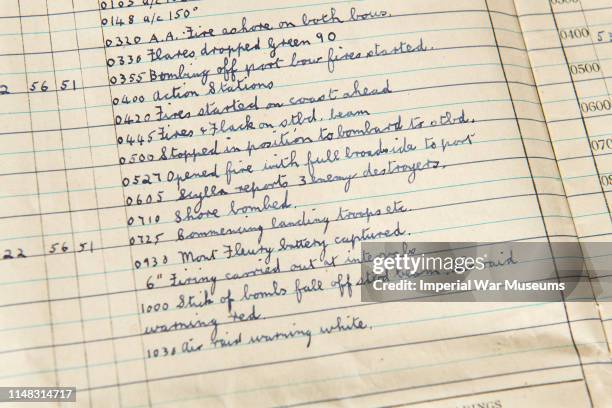 0148 a/c 150°
0320 A.A. Fire ashore on both bows.
0330 Flares dropped Green 90
0355 Bombing off port bow fires started.
0400 Action Stations
0420 Fires started on coast ahead
0445 Fires & Flack on stbd. beam
0500 Stopped in position to bombard to stbd.
0527 Opened fire with full broadside to port
0605 Scylla reports 3 enemy destroyers.
0710 Shore bombed.
0725 Commencing landing troops etc.
22 56 51
0930 Mont Fleury battery captured.
6" Firing carried out at
1000 Stick of bombs fall off stbd raid
warning red.
1030 Air raid warning white.
0400
0500
0600
gettyimages
Credit: Imperial War Museums
1148314717